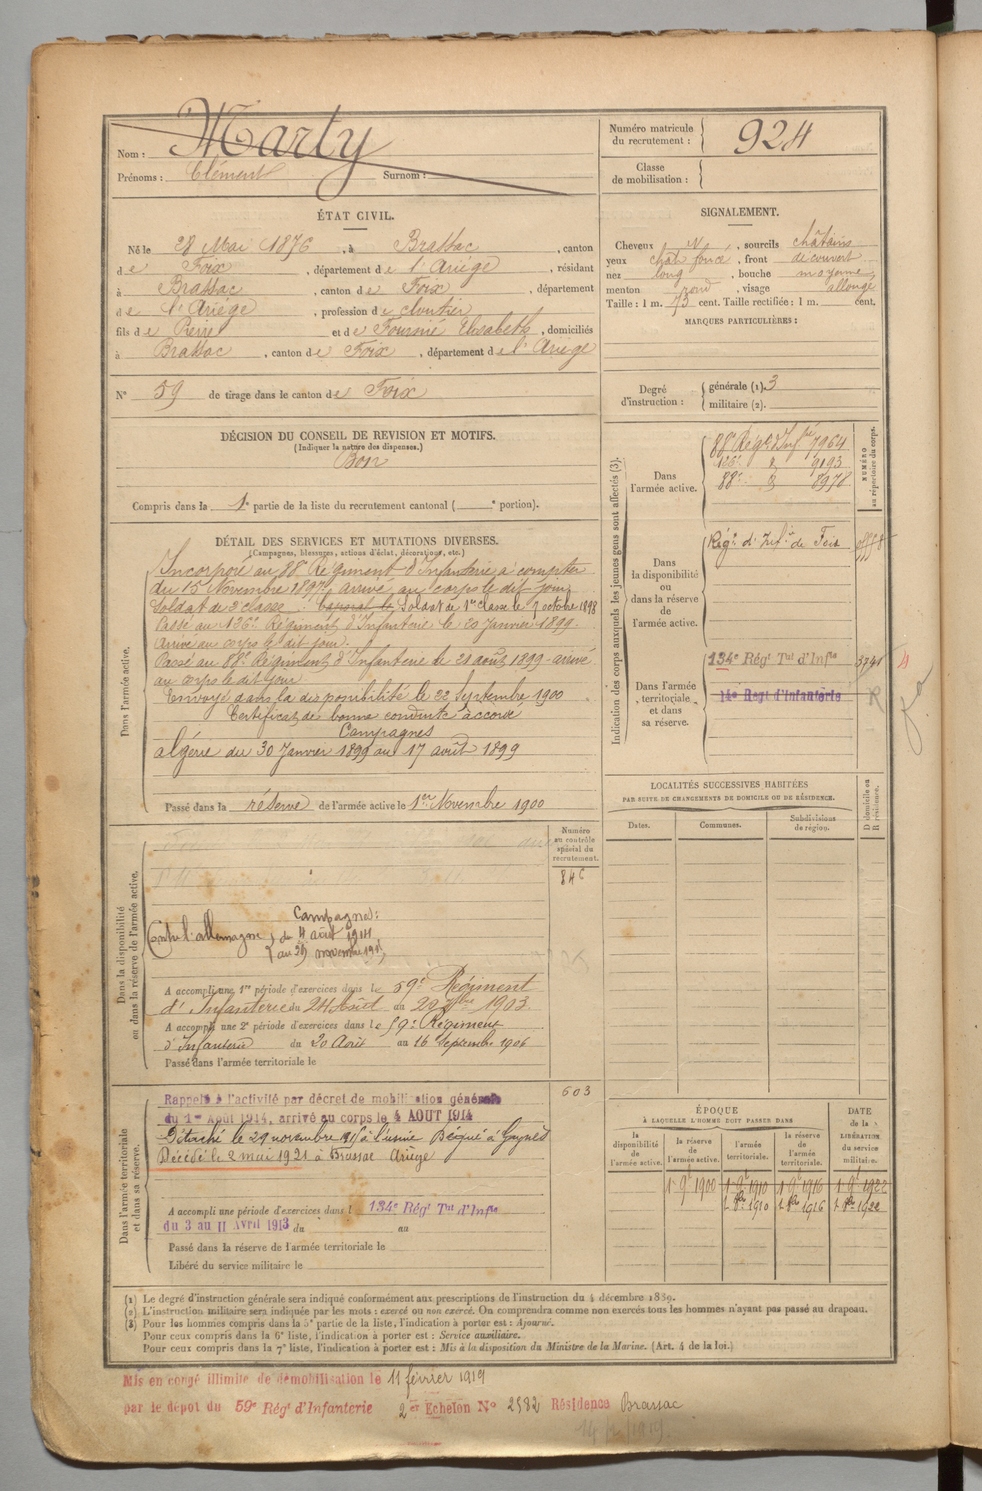 Nom : Marty
Prénoms : Clément Surnom :
Numéro matricule du recrutement : 924
Classe de mobilisation :
ÉTAT CIVIL.
Né le 28 Mai 1876, à Brassac, canton
de Foix, département de l'Ariége, résidant
à Brassac, canton de Foix, département
de l'Ariége, profession de cloutier
fils de Pierre et de Fournié Elisabeth, domiciliés
à Brassac, canton de Foix, département de l'Ariége
N° 59 de tirage dans le canton de Foix
SIGNALEMENT.
Cheveux N, sourcils châtains
yeux chât foncé, front découvert
nez long, bouche moyenne
menton rond, visage allongé
Taille : 1 m. 73 cent. Taille rectifiée : 1 m. cent.
MARQUES PARTICULIÈRES :
Degré d'instruction : générale (1). 3
militaire (2).
DÉCISION DU CONSEIL DE REVISION ET MOTIFS.
(Indiquer la nature des dispenses.)
Bon
Compris dans la 1e partie de la liste du recrutement cantonal ( e portion).
DÉTAIL DES SERVICES ET MUTATIONS DIVERSES.
(Campagnes, blessures, actions d'éclat, décorations, etc.)
Dans l'armée active.
Incorporé au 88e Régiment d'Infanterie à compter
du 15 Novembre 1897, arrivé au corps le dit jour
Soldat de 2e classe. Caporal le Soldat de 1re classe le 1 octobre 1898
Passé au 126e Régiment d'Infanterie le 20 Janvier 1899.
Arrivé au corps le dit jour.
Passé au 88e Régiment d'Infanterie le 21 août 1899 - arrivé
au corps le dit jour
Envoyé dans la disponibilité le 22 Septembre 1900
Certificat de bonne conduite accordé
Campagnes
Algérie du 30 Janvier 1899 au 17 août 1899
Passé dans la réserve de l'armée active le 1er Novembre 1900
Indication des corps auxquels les jeunes gens sont affectés (3).
NUMÉRO au répertoire du corps.
Dans l'armée active.
88e Régt d'Infrie 7964
126e " 9193
88e " 8978
Dans la disponibilité ou dans la réserve de l'armée active.
Régt d'Infie de Foix
Dans l'armée territoriale et dans sa réserve.
134e Régt Tal d'Infie 3791
14e Regt d'Infanterie
R
LOCALITÉS SUCCESSIVES HABITÉES
PAR SUITE DE CHANGEMENTS DE DOMICILE OU DE RÉSIDENCE.
Dates. Communes. Subdivisions de région. D domicile ou R résidence.
Dans la disponibilité ou dans la réserve de l'armée active.
Numéro au contrôle spécial du recrutement.
846
Campagnes :
Contre l'allemagne, du 4 août 1914
au 29 novembre 1915
A accompli une 1re période d'exercices dans le 59e Régiment
d'Infanterie du 24 Août au 20 7bre 1903
A accompli une 2e période d'exercices dans le 59e Régiment
d'Infanterie du 20 Août au 16 Septembre 1906
Passé dans l'armée territoriale le
Dans l'armée territoriale et dans sa réserve.
603
Rappelé à l'activité par décret de mobilisation générale
du 1er Août 1914, arrivé au corps le 4 AOUT 1914
Détaché le 29 novembre 1915 à l'usine
Décédé le 2 mai 1921 à Brassac Ariège
A accompli une période d'exercices dans l 134e Régt Tal d'Infie
du 3 au 11 Avril 1913 du au
Passé dans la réserve de l'armée territoriale le
Libéré du service militaire le
ÉPOQUE
À LAQUELLE L'HOMME DOIT PASSER DANS
DATE de la LIBÉRATION du service militaire.
la disponibilité de l'armée active. la réserve de l'armée active. l'armée territoriale. la réserve de l'armée territoriale.
1 9e 1900 1 9e 1910 1 9e 1916 1 9e 1922
1 8re 1910 1 8re 1916 1 8re 1922
(1) Le degré d'instruction générale sera indiqué conformément aux prescriptions de l'instruction du 4 décembre 1889.
(2) L'instruction militaire sera indiquée par les mots : exercé ou non exercé. On comprendra comme non exercés tous les hommes n'ayant pas passé au drapeau.
(3) Pour les hommes compris dans la 5e partie de la liste, l'indication à porter est : Ajourné.
Pour ceux compris dans la 6e liste, l'indication à porter est : Service auxiliaire.
Pour ceux compris dans la 7e liste, l'indication à porter est : Mis à la disposition du Ministre de la Marine. (Art. 4 de la loi.)
Mis en congé illimité de démobilisation le 11 février 1919
par le dépot du 59e Régt d'Infanterie 2er Echelon N° 2582 Résidence Brassac